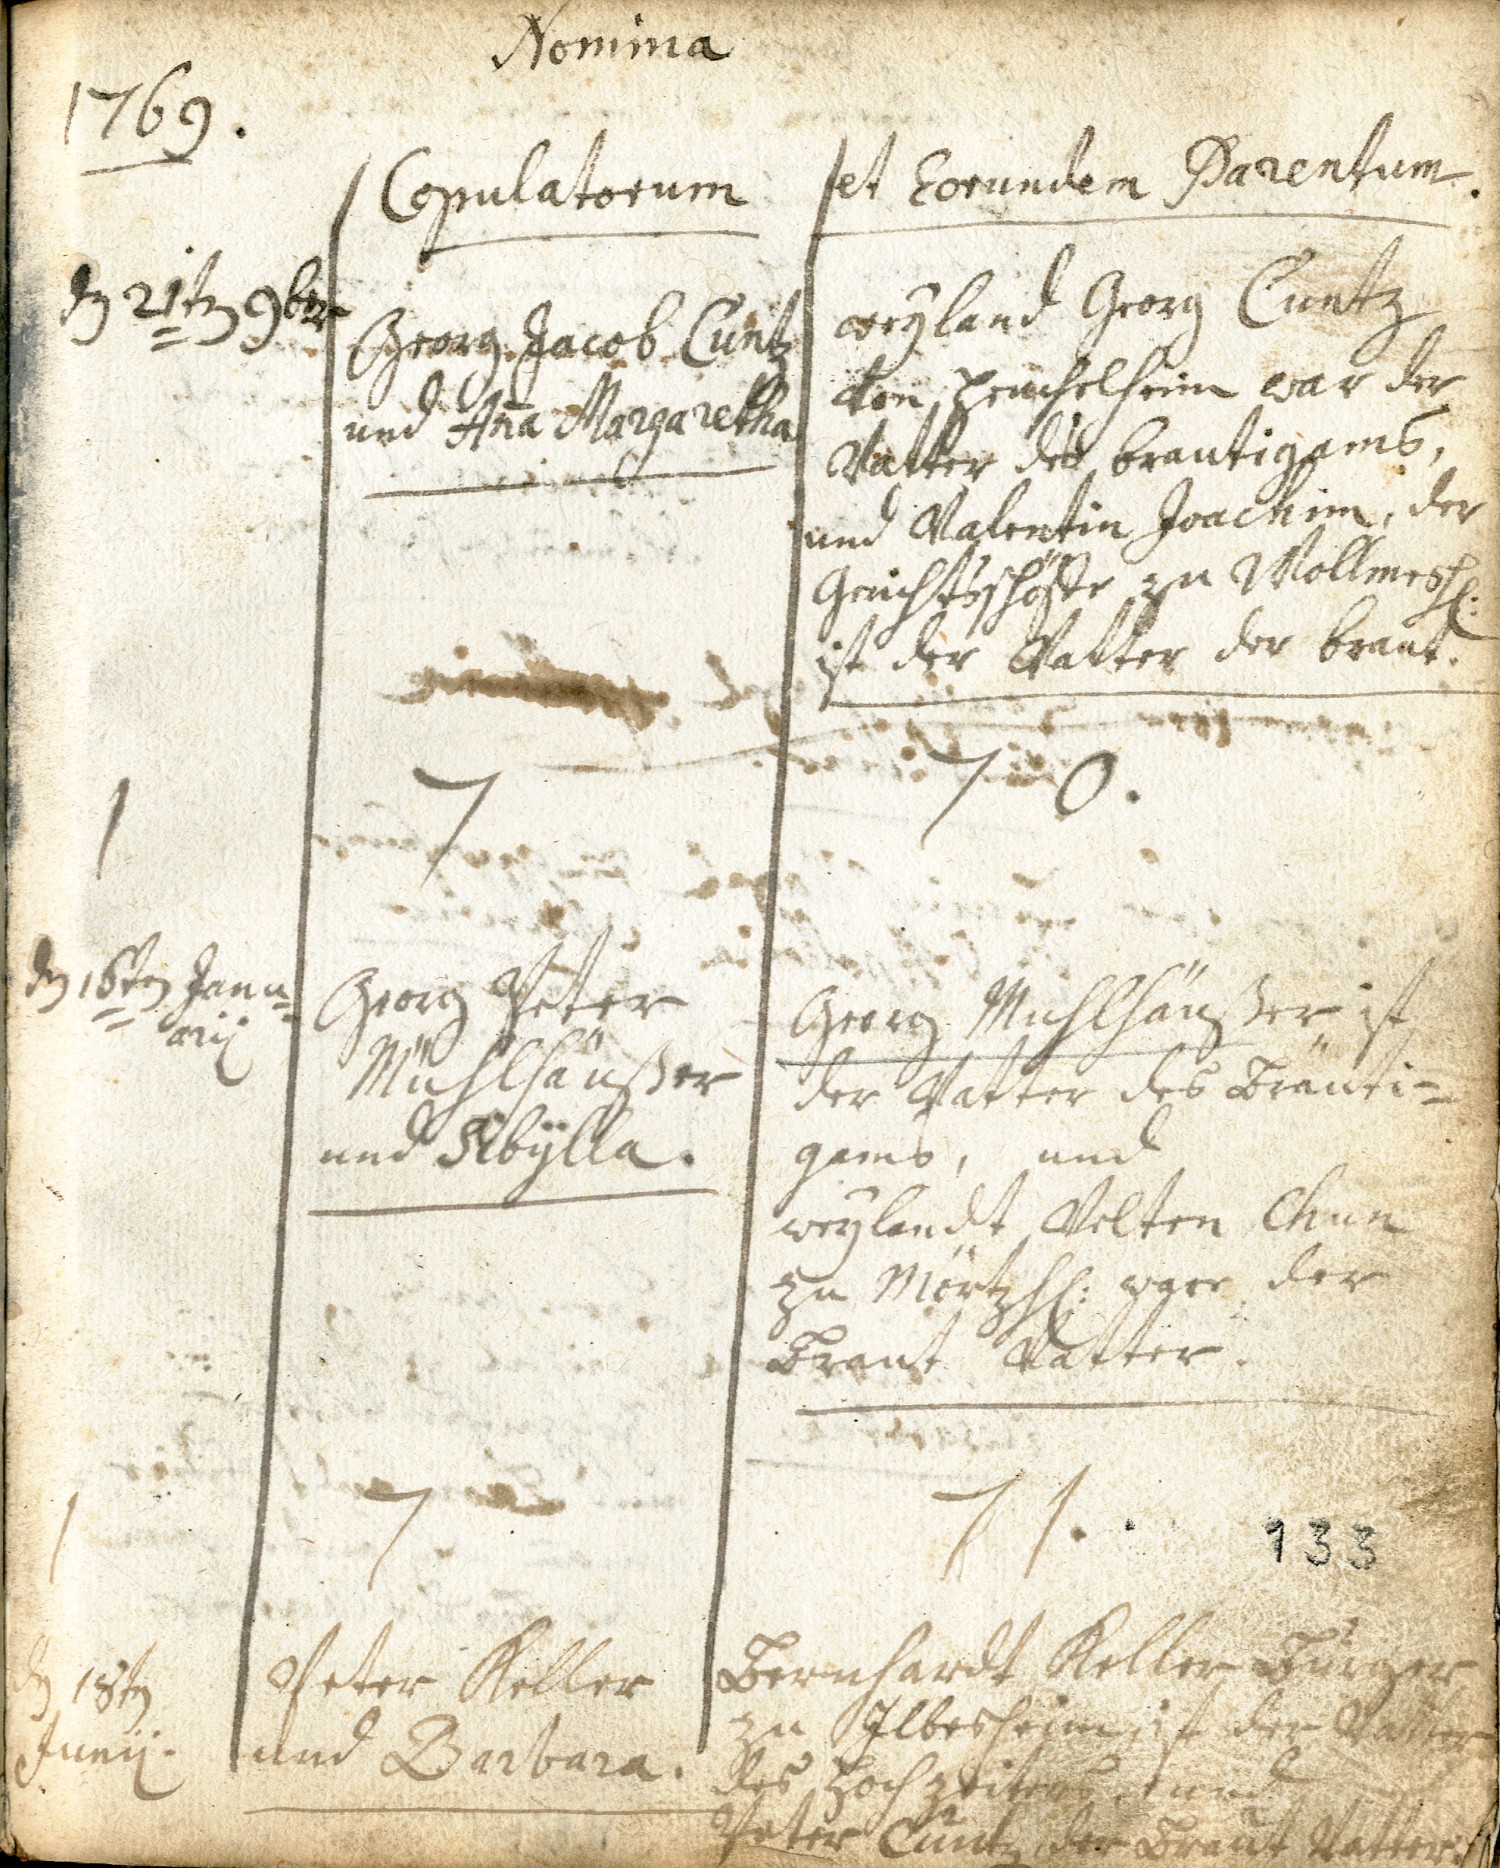 Nomina
1769.
Copulatorum
et Eorundem Parentum.
dn 21tn 9br
Georg Jacob Cuntz
und Aña Margaretha
weyland Georg Cuntz
von Heuchelheim war der
Vatter des brautigams,
und Valentin Joachim, der
Gerichtsschöffe zu Wollmeßh:
ist der Vatter der braut.
1 7 7 0.
dn 16ten Janu=
arii
Georg Peter
Mühlhäußer
und Sibÿlla.
Georg Mühlhäußer ist
der Vatter des Bräuti=
gams, und
weylandt Velten Chun
zu Mörtzh: ware der
Braut Vatter.
1 7 7 1.
133
dn 18tn
Junii.
Peter Keller
und Barbara.
Bernhardt Keller Bürger
zu Ilbesheim ist der Vatter
des Hochzeiters, und
Peter Cuntz der Braut Vatter.